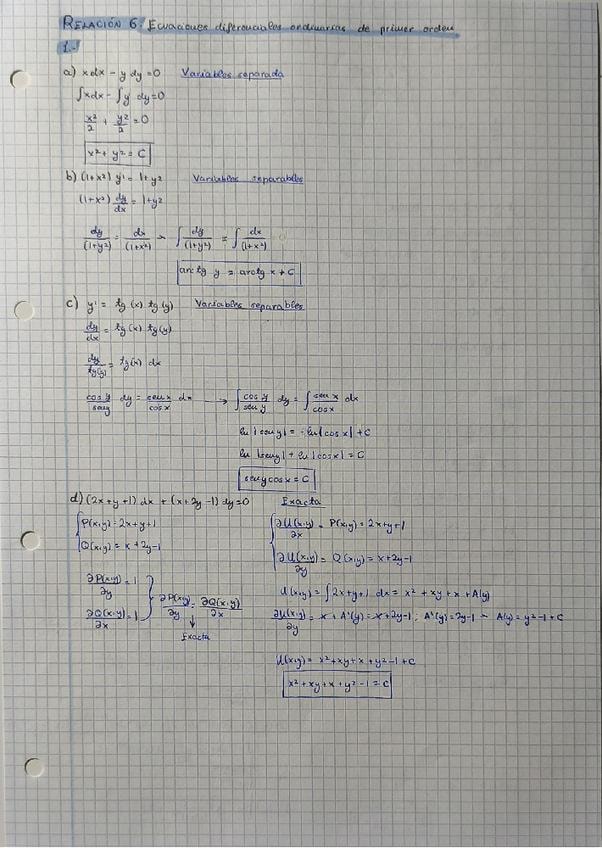 RELACIÓN 6. Ecuaciones diferenciales ordinarias de primer orden
1.-
a) xdx - y dy = 0 Variables separada
∫xdx - ∫y dy = 0
x²/2 + y²/2 = 0
x² + y² = C
b) (1+x²) y' = 1+y² Variables separables
(1+x²) dy/dx = 1+y²
dy/(1+y²) = dx/(1+x²) → ∫ dy/(1+y²) = ∫ dx/(1+x²)
arctg y = arctg x + C
c) y' = tg(x) tg(y) Variables separables
dy/dx = tg(x) tg(y)
dy/tg(y) = tg(x) dx
cos y/sen y dy = sen x/cos x dx → ∫ cos y/sen y dy = ∫ sen x/cos x dx
ln|sen y| = -ln|cos x| + C
ln |sen y| + ln|cos x| = C
sen y cos x = C
d) (2x+y+1) dx + (x+2y-1) dy = 0 Exacta
P(x,y) = 2x+y+1 ∂U(x,y)/∂x = P(x,y) = 2x+y+1
Q(x,y) = x+2y-1 ∂U(x,y)/∂y = Q(x,y) = x+2y-1
∂P(x,y)/∂y = 1 U(x,y) = ∫2x+y+1 dx = x² + xy + x + A(y)
∂Q(x,y)/∂x = 1 ∂P(x,y)/∂y = ∂Q(x,y)/∂x ∂U(x,y)/∂y = x + A'(y) = x+2y-1; A'(y) = 2y-1 - A(y) = y²-1+C
↓
Exacta
U(x,y) = x²+xy+x+y²-1+C
x²+xy+x+y²-1 = C